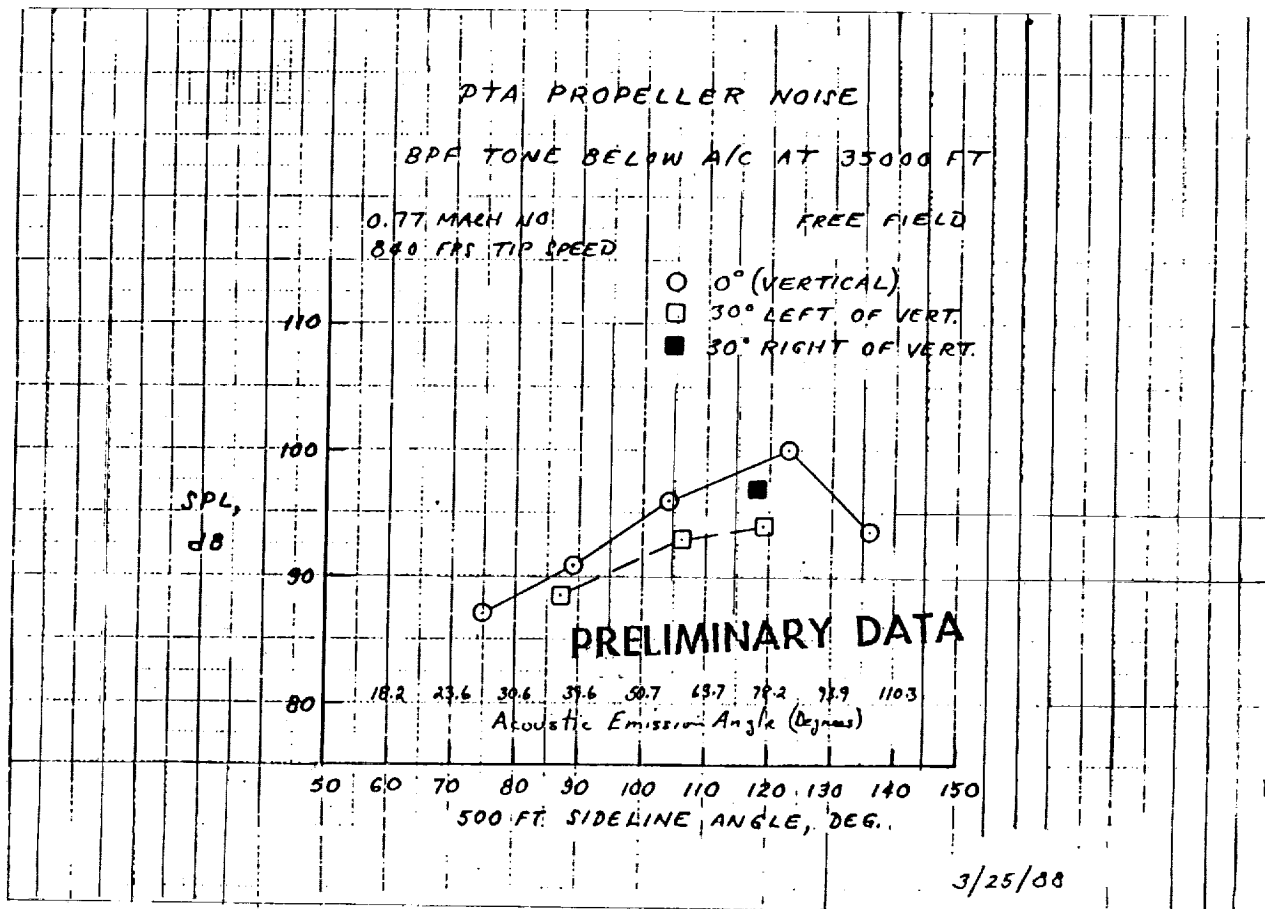 PTA PROPELLER NOISE
BPF TONE BELOW A/C AT 35000 FT
0.77 MACH NO
FREE FIELD
840 FPS TIP SPEED
0° (VERTICAL)
30° LEFT OF VERT.
30° RIGHT OF VERT.
110
100
SPL,
dB
90
PRELIMINARY DATA
80
18.2 23.6 30.6 39.6 50.7 63.7 78.2 93.9 110.3
Acoustic Emission Angle (Degrees)
50 60 70 80 90 100 110 120 130 140 150
500 FT. SIDELINE ANGLE, DEG.
3/25/88